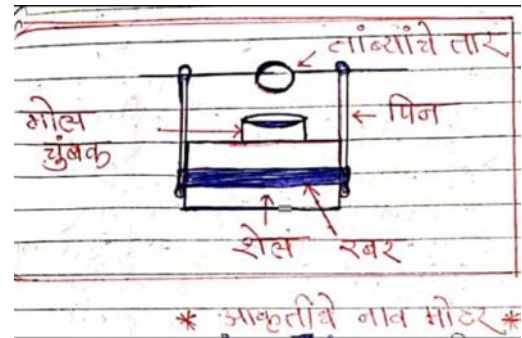 तांब्यांचे तार
गोल
चुंबक
पिन
शेल
रबर
* आकृतीचे नाव मोटर *